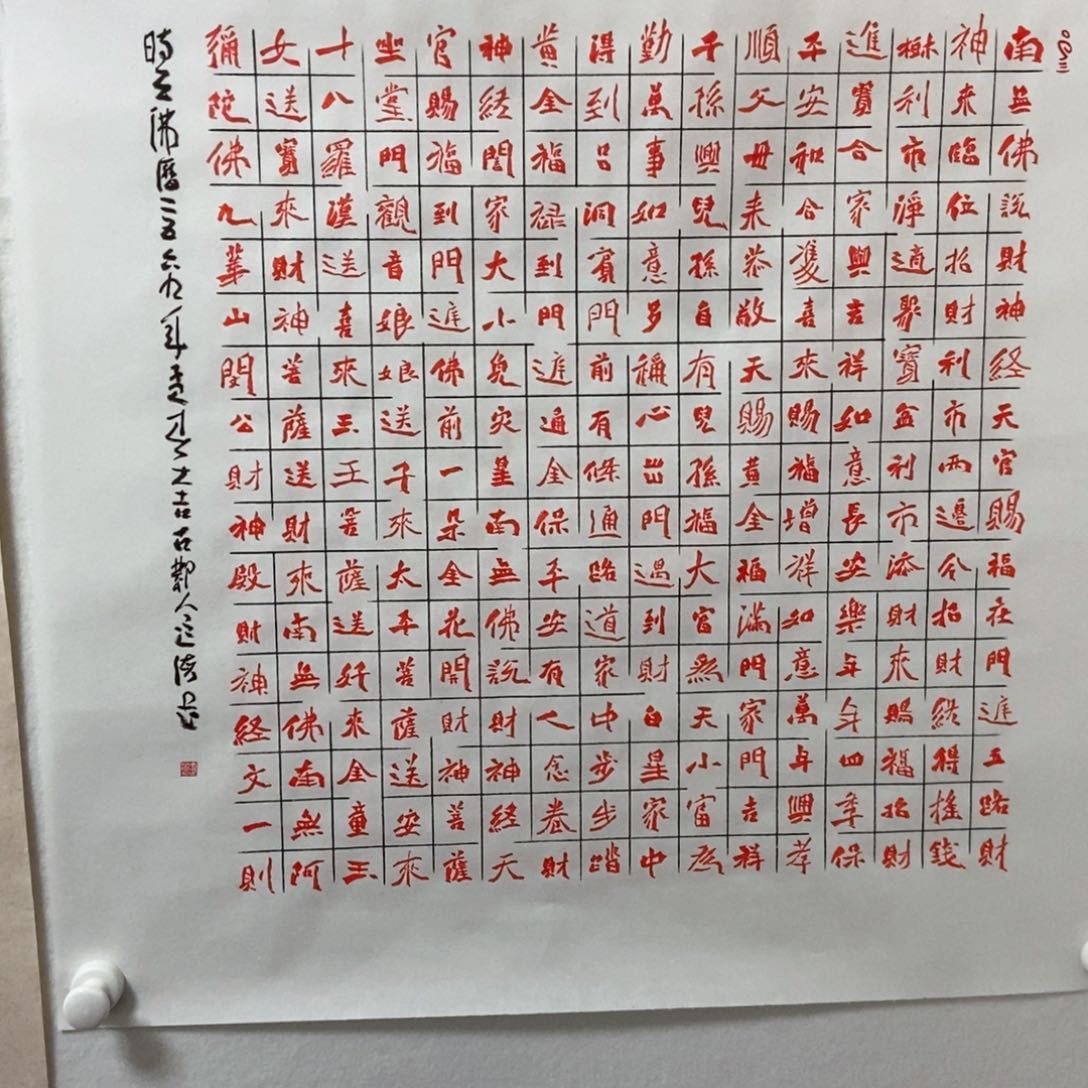 南無佛説財神経天官賜福在門進五路財
神來臨位招財利市兩邊分招財得摇錢
樹利市淨適聚寳盆利市添財來賜福招財
進寶合家興吉祥如意長安樂年年四季保
平安和合雙喜來賜福增祥如意萬年興孝
順父母来恭敬天賜黄金福滿門家門吉祥
千孫興兒孫自有兒孫福大富無天小富
勤萬事如意多稱心出門遇到財白星家中
得到呂洞賓門前有條通路道家中步步踏
黄金福禄到門進通金保平安有人念卷財
神経閤家大小免灾星南無佛説財神経天
官賜福到門進佛前一朵金花開財神菩薩
坐堂門觀音娘娘送千來太平菩薩送安來
十八羅漢送喜來三王菩薩送好來金童玉
女送寳來財神菩薩送財來南無佛南無阿
彌陀佛九華山閔公財神殿財神経文一則
時在佛曆二五六九年大吉古鄞人